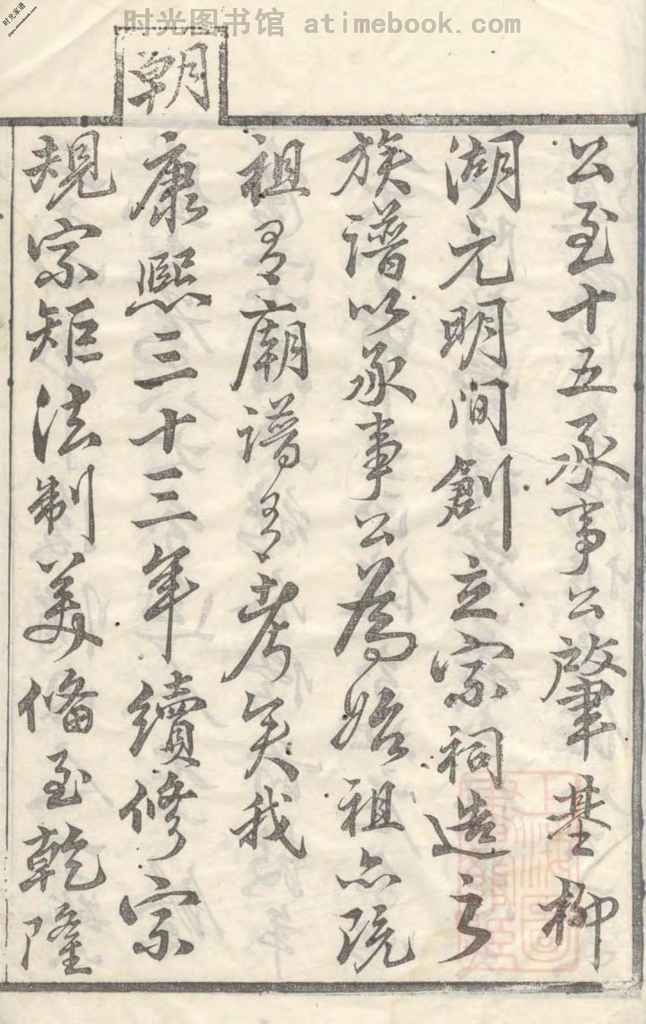 时光图书馆 atimebook.com
时光家谱
公至十五承事公肇基柳
湖元明間創立宗祠造
族譜以承事公為始祖亦既
祖有廟譜有考矣我
朝康熙三十三年續修宗
規宗矩法制美備至乾隆